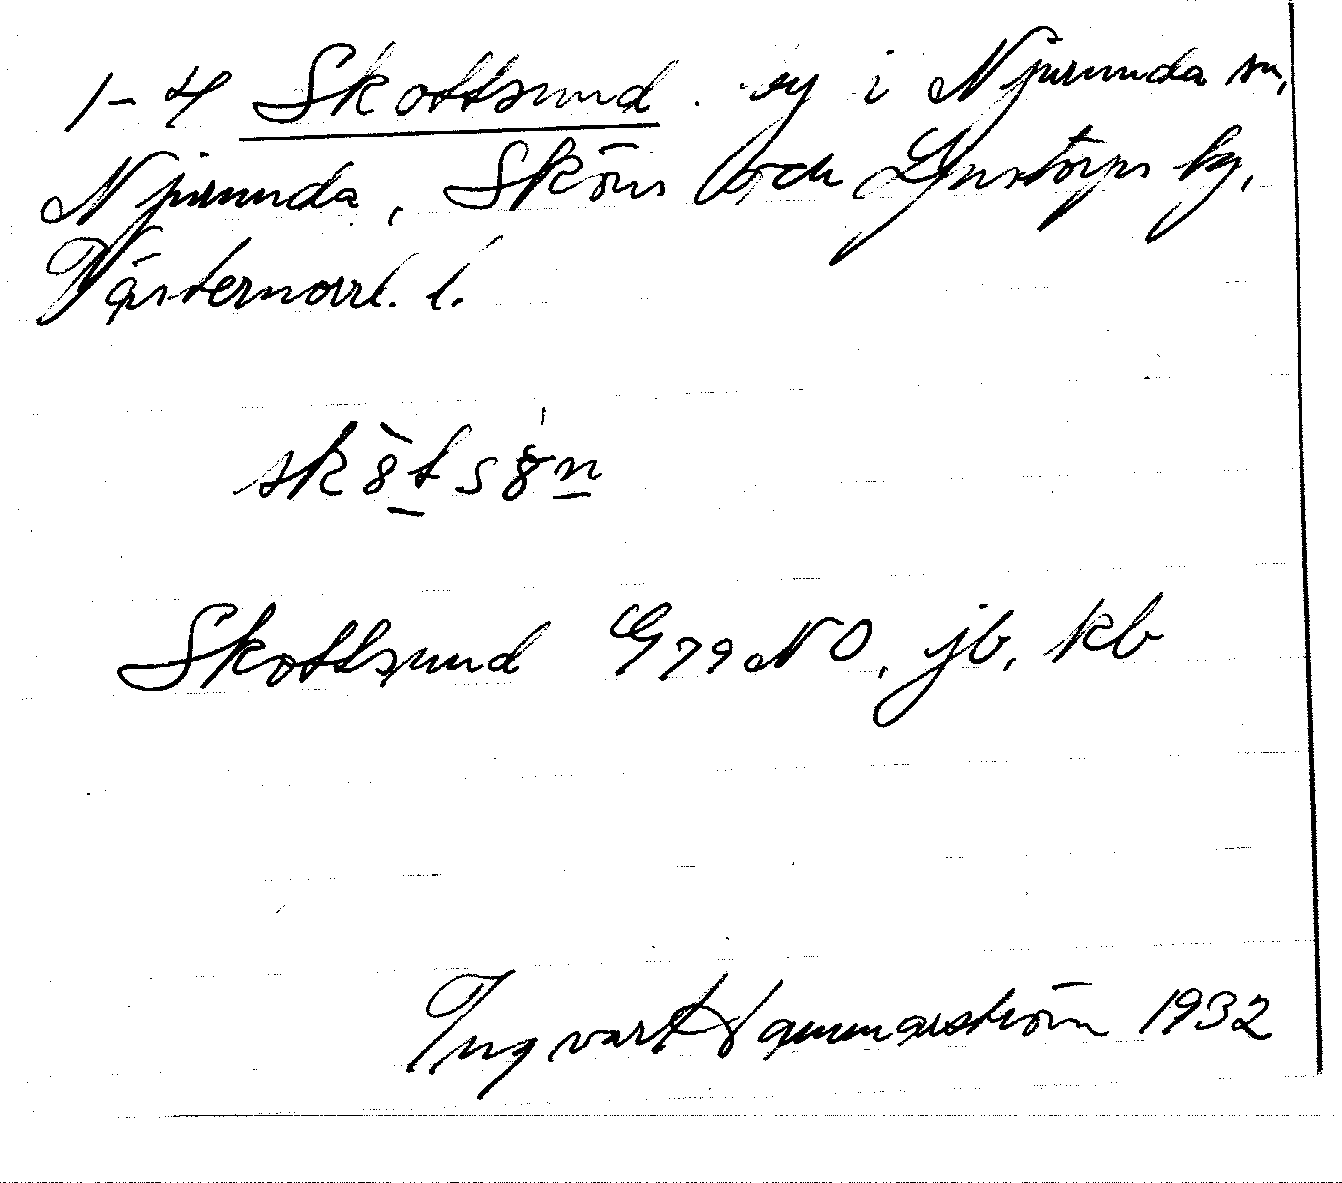 1-4 Skottsund. by i Njurunda sn,
Njurunda, Sköns och Ljustorps tg,
Västernorrl. l.
Skottsund G79NO, jb, kb
Ingvart Hammarström 1932